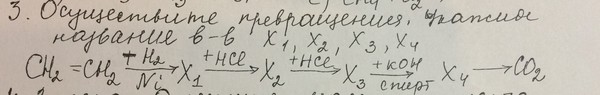 3. Осуществите превращения, укажите
название в-в X₁, X₂, X₃, X₄
CH₂ = CH₂ +H₂ Ni → X₁ +HCl → X₂ +HCl → X₃ +KOH спирт → X₄ → CO₂